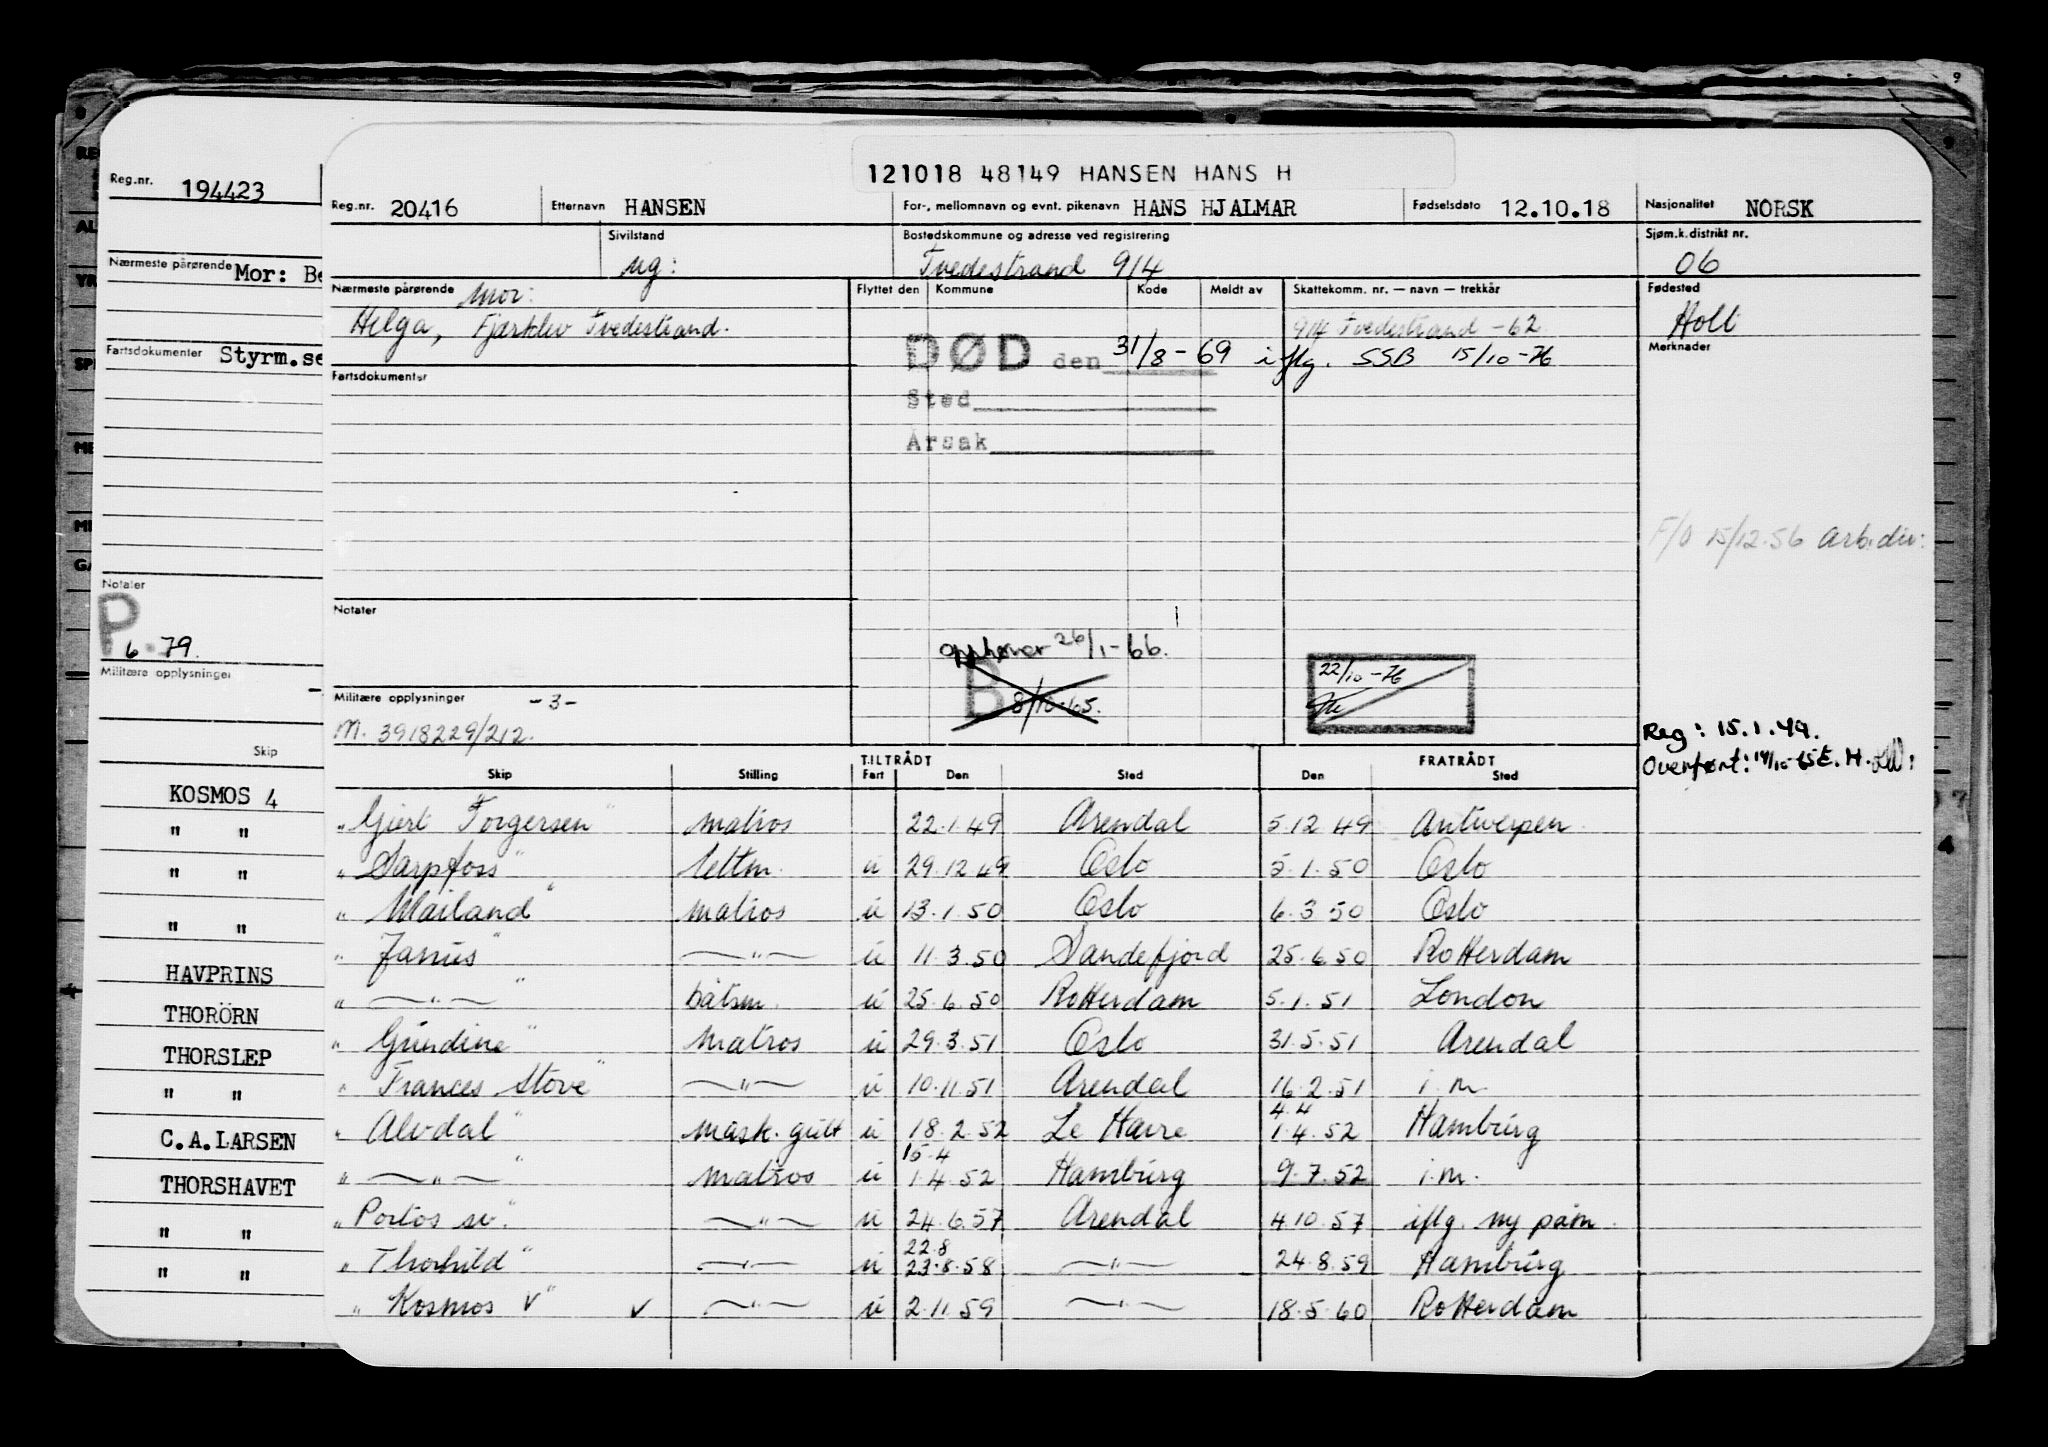 121018 48149 HANSEN HANS H
Reg.nr. 194423
Reg.nr. 20416 Etternavn HANSEN For-, mellomnavn og evnt. pikenavn HANS HJALMAR Fødselsdato 12.10.18 Nasjonalitet NORSK
Sivilstand ug: Bostedskommune og adresse ved registrering Tvedestrand 914 Sjøm.k.distrikt nr. 06
Nærmeste pårørende Mor: Be
Nærmeste pårørende Mor: Flyttet den Kommune Kode Meldt av Skattekomm. nr. — navn — trekkår Fødested
Helga, Fjærkleiv Tvedestrand. 914 Tvedestrand -62 Holt
DØD den 31/8-69 iflg. SSB 15/10-76 Merknader
Fartsdokumenter Styrm.se
Fartsdokumenter
Sted
Årsak
F/O 15/12.56 Arb.div:
Notater
P
6.79.
Notater
opphører 26/1-66.
B 8/10-65.
22/10-76
Militære opplysninger
Militære opplysninger -3-
M. 3918229/212.
Reg: 15.1.49.
Overført: 14/10-65 E.H.
Skip
KOSMOS 4
" "
" "
" "
HAVPRINS
THORÖRN
THORSLEP
" "
C.A.LARSEN
THORSHAVET
" "
" "
TILTRÅDT FRATRÅDT
Skip Stilling Fart Den Sted Den Sted
"Gjert Torgersen" matros 22.1.49 Arendal 5.12.49 Antwerpen
"Sarpfoss" lettm. u 29.12.49 Oslo 5.1.50 Oslo
"Mailand" matros u 13.1.50 Oslo 6.3.50 Oslo
"Janus" —"— u 11.3.50 Sandefjord 25.6.50 Rotterdam
"—"—" båtsm. u 25.6.50 Rotterdam 5.1.51 London
"Gundine" matros u 29.3.51 Oslo 31.5.51 Arendal
"Frances Stove" —"— u 10.11.51 Arendal 16.2.51 i.m.
4.4
"Alvdal" mask.gutt u 18.2.52 Le Havre 1.4.52 Hamburg
15.4
"—"—" matros u 1.4.52 Hamburg 9.7.52 i.m.
"Portos sv." —"— u 24.6.57 Arendal 4.10.57 iflg. ny påm.
22.8
"Thorhild" —"— u 23.8.58 —"— 24.8.59 Hamburg
"Kosmos V" v —"— u 2.11.59 —"— 18.5.60 Rotterdam